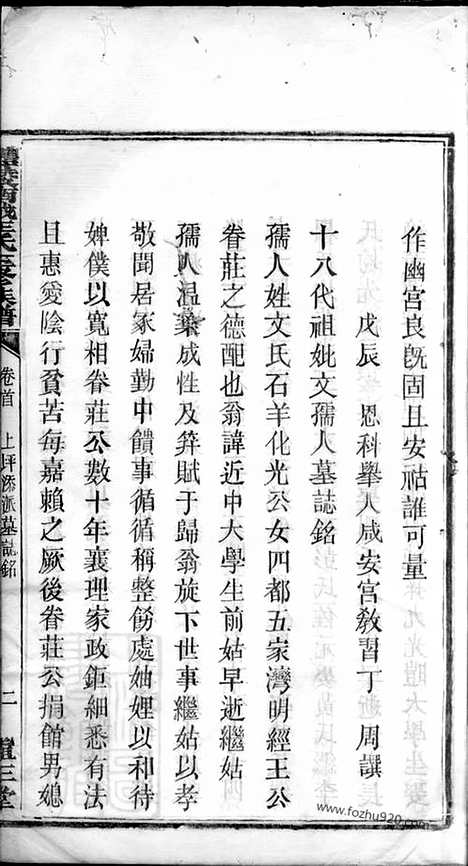 作幽宮良旣固且安祜誰可量
戊辰　恩科舉人咸安宮敎習丁　周譔
十八代祖妣文孺人墓誌銘
孺人姓文氏石羊化光公女四都五家灣明經王公
眷莊之德配也翁諱近中大學生前姑早逝繼姑
孺人溫柔成性及笄賦于歸翁旋下世事繼姑以孝
敬聞居冢婦勤中饋事循循稱整飭處妯娌以和待
婢僕以寬相眷莊公數十年襄理家政鉅細悉有法
且惠愛陰行貧苦每嘉賴之厥後眷莊公捐館男媳
王氏五修族譜
卷首　上坪添派墓誌銘
二
三堂
www.fozhu920.com